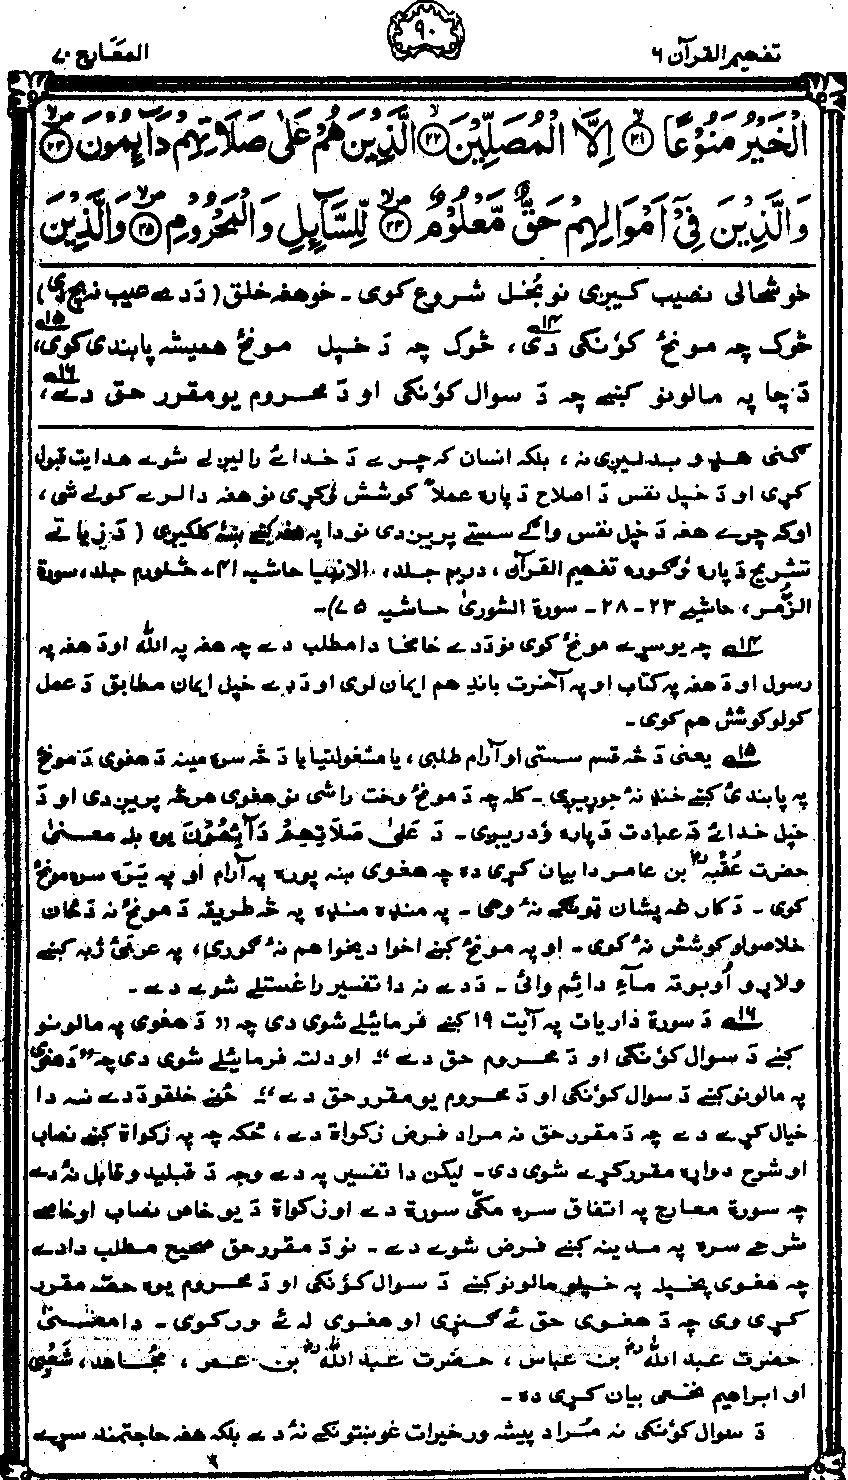 تفهيم القرآن ۶
۹۰
المعَارج ۷۰
الْخَيْرُ مَنُوْعًا ﴿۲۱﴾ اِلَّا الْمُصَلِّيْنَ ﴿۲۲﴾ الَّذِيْنَ هُمْ عَلٰى صَلَاتِهِمْ دَآئِمُوْنَ ﴿۲۳﴾
وَالَّذِيْنَ فِيْٓ اَمْوَالِهِمْ حَقٌّ مَّعْلُوْمٌ ﴿۲۴﴾ لِّلسَّآئِلِ وَالْمَحْرُوْمِ ﴿۲۵﴾ وَالَّذِيْنَ
خوشحالی نصیب کیږی نو بُخل شروع کوی ـ خو هغه خلق (دَ دے عیب نه بچ دی)
څوک چه مونځ کوُنکی دی۱۴، څوک چه دَ خپل مونځ همیشه پابندی کوی۱۵،
دَ چا په مالونو کښے چه دَ سوال کوُنکی او دَ محروم یو مقرر حق دے۱۶،
کنی هډو بدلیږی نه ، بلکه انسان که چرے دَ خدائے رالیږلے شوے هدایت قبول
کړی او دَ خپل نفس دَ اصلاح دَ پاره عملاً کوشش وُکړی نو هغه دا لرے کولے شی ،
اوکه چرے هغه دَ خپل نفس واګے سستے پریږدی نو دا په هغه کښے ښۀ کلکیږی ( دَ زیاتے
تشریح دَ پاره وُګوره تفهیم القرآن ، دریم جلد، الانبیا حاشیه ۴۱ ـ څلورم جلد، سورة
الزُّمر، حاشیے ۲۳ ـ ۲۸ ـ سورة الشوریٰ حاشیه ۷۵)ـ
۱۴ چه یو سړے مونځ کوی نو دَ دے خامخا دا مطلب دے چه هغه په الله او دَ هغه په
رسول او دَ هغه په کتاب او په آخرت باندِ هم ایمان لری او دَ دے خپل ایمان مطابق دَ عمل
کولو کوشش هم کوی ـ
۱۵ یعنی دَ څه قسم سستی او آرام طلبی ، یا مشغولتیا یا دَ څه سره مینه دَ هغوی دَ مونځ
په پابندیٔ کښے خنډ نۀ جوړیږی ـ کله چه دَ مونځ وخت راشی نو هغوی هر څه پریږدی او دَ
خپل خدائے دَ عبادت دَ پاره وُدریږی ـ دَ عَلٰى صَلَاتِهِمْ دَآئِمُوْنَ یوه بله معنیٰ
حضرت عُقبه بن عامر دا بیان کړی ده چه هغوی ښه پوره په آرام او په پته سره مونځ
کوی ـ دَ کارغه پشان ټونګے نۀ وهی ـ په منډه منډه په څه طریقه دَ مونځ نه دَ ځان
خلاصولو کوشش نۀ کوی ـ او په مونځ کښے اخوا دیخوا هم نۀ ګوری، په عربیٔ ژبه کښے
ولاړو اُوبوته مآءِ دائم وائی ـ دَ دے نه دا تفسیر راغستلے شوے دے ـ
۱۶ دَ سورة ذاریات په آیت ۱۹ کښے فرمائیلے شوی دی چه " دَ هغوی په مالونو
کښے دَ سوال کوُنکی او دَ محروم حق دے " او دلته فرمائیلے شوی دی چه " دَ هغوی
په مالونو کښے دَ سوال کوُنکی او دَ محروم یو مقرر حق دے " ځنے خلقو دَ دے نه دا
خیال کړے دے چه دَ مقرر حق نه مراد فرض زکواة دے ، ځکه چه په زکواة کښے نصاب
او شرح دواړه مقرر کړے شوی دی ـ لیکن دا تفسیر په دے وجه دَ قبلیدو قابل نۀ دے
چه سورة معارج په اتفاق سره مکّی سورة دے او زکواة دَ یو خاص نصاب او خاصے
شرحے سره په مدینه کښے فرض شوے دے ـ نو دَ مقرر حق صحیح مطلب دا دے
چه هغوی پخپله په خپلو مالونو کښے دَ سوال کوُنکی او دَ محروم یوه حصّه مقرر
کړی وی چه دَ هغوی حق ئے ګنړی او هغوی له ئے ورکوی ـ دا معنیٰ
حضرت عبد الله بن عباس ، حضرت عبد الله بن عمر ، مجاهد، شعبی
او ابراهیم نخعی بیان کړی ده ـ
دَ سوال کوُنکی نه مُراد پیشه ور خیرات غوښتونکے نۀ دے بلکه هغه حاجتمند سړے